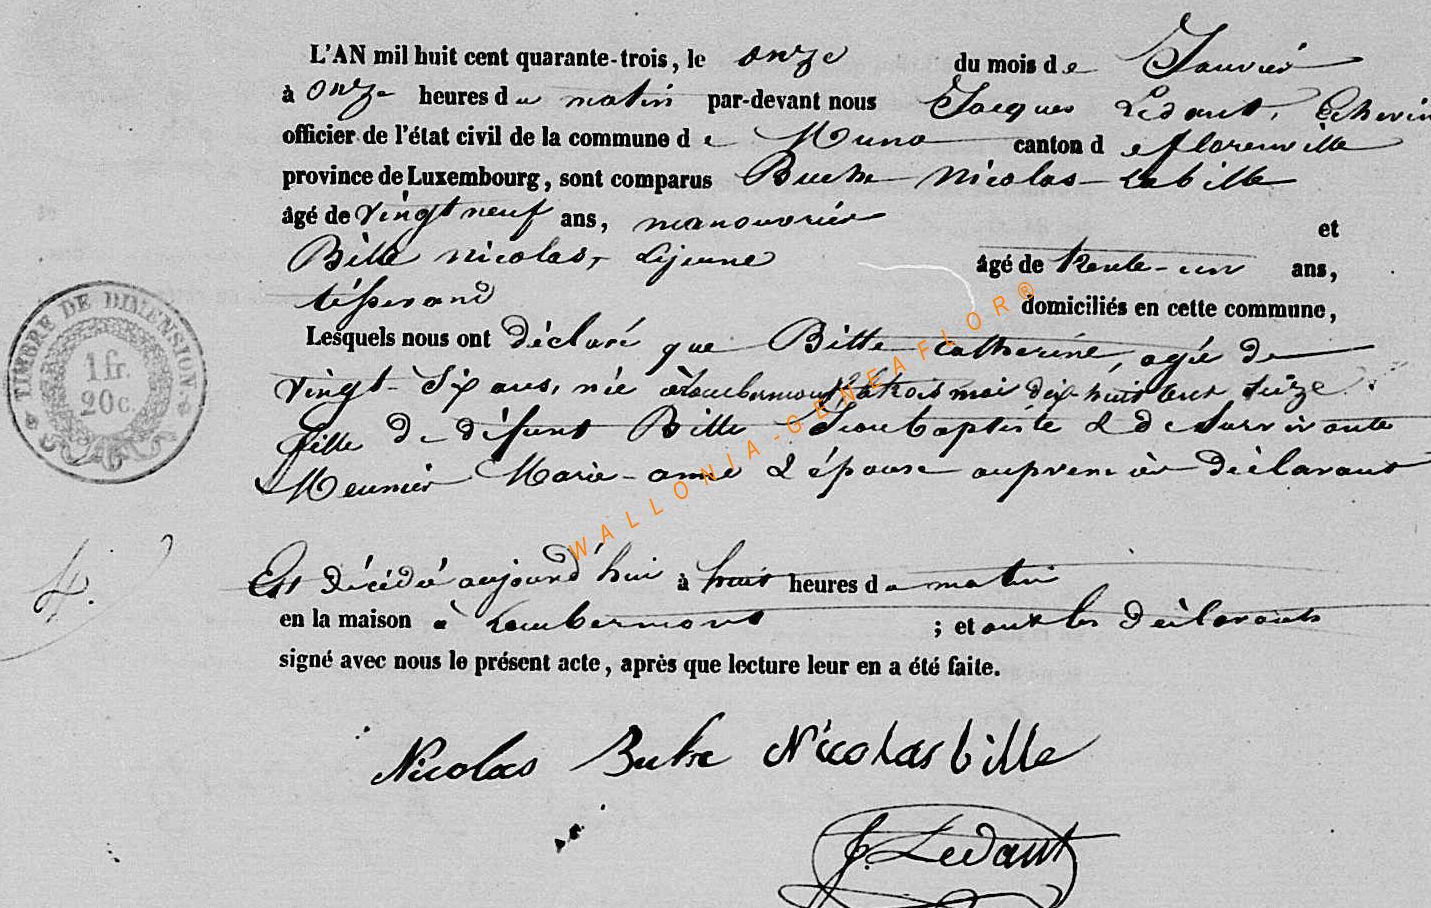 L'AN mil huit cent quarante-trois, le onze du mois de Janvier
à onze heures du matin par-devant nous Jacques Ledant, Echevin
officier de l'état civil de la commune de Muno canton de florenville
province de Luxembourg, sont comparus Buche Nicolas
âgé de vingt neuf ans, manouvrier et
Bille Nicolas, Lejeune âgé de trente-un ans,
tisserand domiciliés en cette commune,
Lesquels nous ont déclaré que Bille catherine, agée de
vingt-Six ans, née à Lambermont trois mai dix-huit cent seize
fille de défunt Bille Jean baptiste & de Survivante
Meunier Marie-anne & épouse au premier déclarant
Est décédée aujourd'hui à huit heures du matin
en la maison à Lambermont ; et ont les déclarants
signé avec nous le présent acte, après que lecture leur en a été faite.
Nicolas Buche Nicolas bille
J. Ledant
TIMBRE DE DIMENSION
1 fr.
20 c.
4.
WALLONIA-GENEAFLOR®